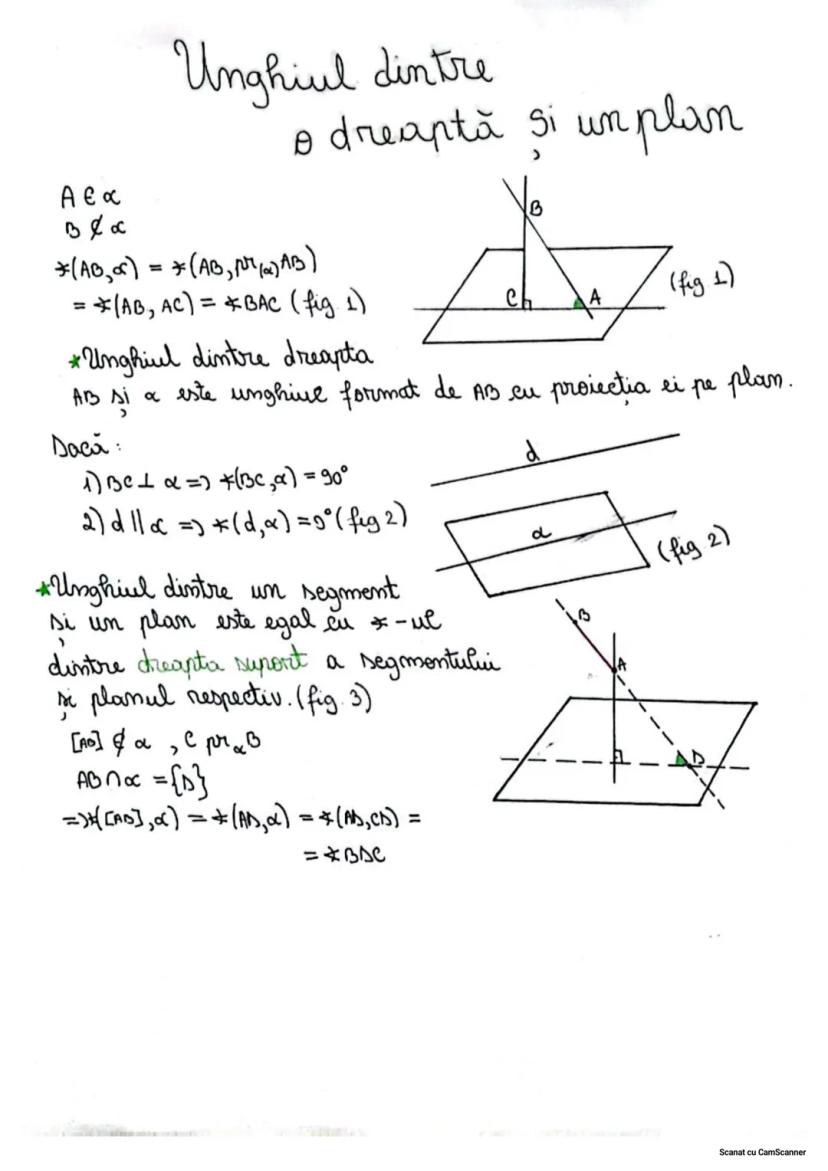 Unghiul dintre
o dreaptă și un plan
A ∈ α
B ∉ α
∢(AB,α) = ∢(AB, pr(α)AB)
= ∢(AB, AC) = ∢BAC (fig. 1)
B
C
A
(fig 1)
*Unghiul dintre dreapta
AB și α este unghiul format de AB cu proiecția ei pe plan.
Dacă:
1) BC ⊥ α => ∢(BC,α) = 90°
2) d || α => ∢(d,α) = 0° (fig 2)
d
α
(fig 2)
*Unghiul dintre un segment
și un plan este egal cu ∢-ul
dintre dreapta suport a segmentului
și planul respectiv. (fig. 3)
B
A
D
[AB] ∉ α , C prαB
AB ∩ α = {D}
=> ∢([AB],α) = ∢(AD,α) = ∢(AD,CD) =
= ∢BDC
Scanat cu CamScanner